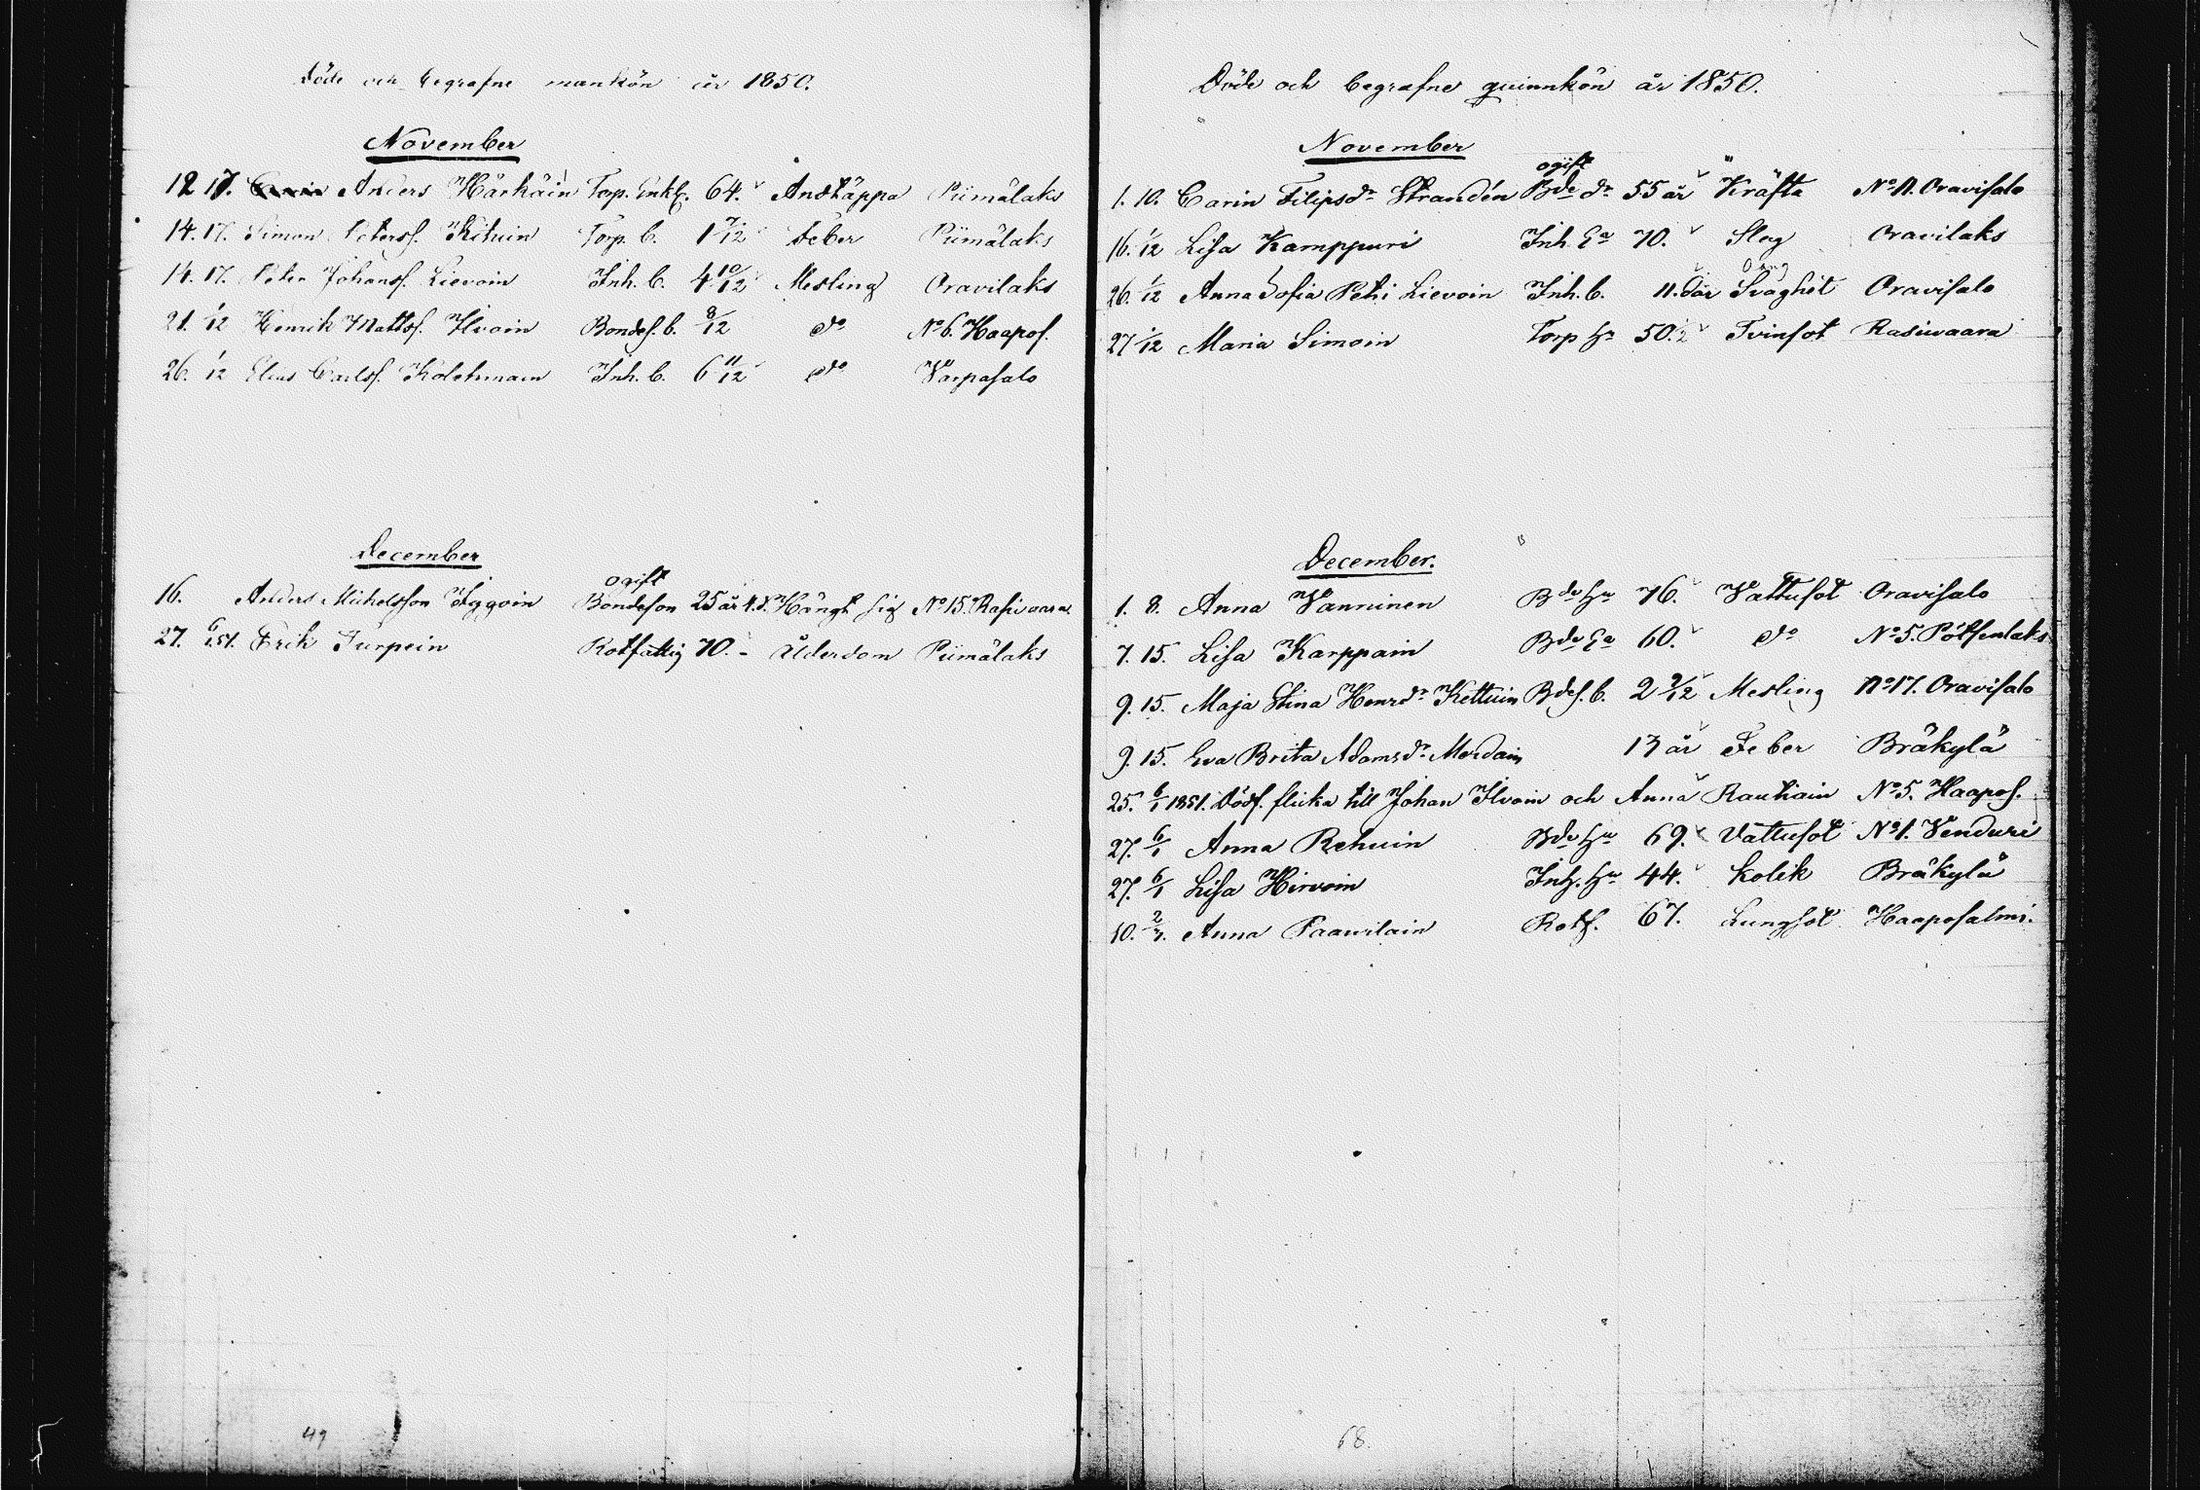 Döde och begrafne mankön år 1850.
November
12 17. Anders Härkäin Torp. Enkl. 64. Andtäppa Piimälaks
14. 17. Simon Petersf. Kituin Torp. b. 1 7/12 Feber Piimälaks
14. 17. Peter Johansf. Lievoin Inh. b. 4 10/12 Mesling Oravilaks
21. 1/12 Henrik Mattsf. Ilvoin Bondef. b. 8/12 do No 6. Haapof.
26. 1/12 Elias Carlsf. Kolehmain Inh. b. 6 11/12 do Varpasalo
December
ogift
16. Anders Michelsson Bondeson 25 år Hängt sig No 15. Rasivaara
27. 6/1 51. Erik Turpein Rotfattig 70. - Ålderdom Piimälaks
49
Döde och begrafne quinnkön år 1850.
November
ogift
1. 10. Carin Filipsdr Strandén Bde dr 55 år Kräfta No 11. Oravisalo
16. 1/12 Lisa Kamppuri Inh. Ea 70. Slag Oravilaks
26. 1/12 Anna Sofia Petri Lievoin Inh. b. 11. Svaghet Oravisalo
27 1/12 Maria Simoin Torp hu 50. Tvinsot Rasiwaara
December.
1. 8. Anna Vanninen Bde hu 76. Vattusot Oravisalo
7. 15. Lisa Karppain Bde Ea 60. do No 5. Pötsenlaks
9. 15. Maja Stina Henrdr Kettuin Bdef. b. 2 9/12 Mesling No 17. Oravisalo
9. 15. Eva Brita Adamsdr Mordain 13 år Feber Bräkylä
25. 6/1 1851. Dödf. flicka till Johan Ilvoin och Anna Rautiain No 5. Haapof.
27. 6/1 Anna Rehuin Bde hu 69. Vattusot No 1. Venduri
27. 6/1 Lisa Hirvoin Inh. hu 44. Kolik Bräkylä
10. Anna Paavilain Rotf. 67. Lungsot Haaposalmi.
68.